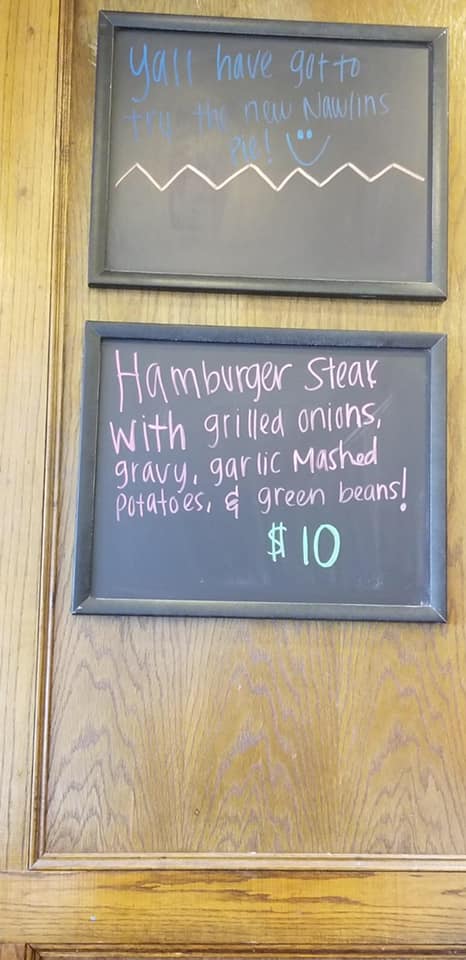 yall have got to
try the new Nawlins
Pie!
Hamburger Steak
with grilled onions,
gravy, garlic Mashed
potatoes, & green beans!
$10